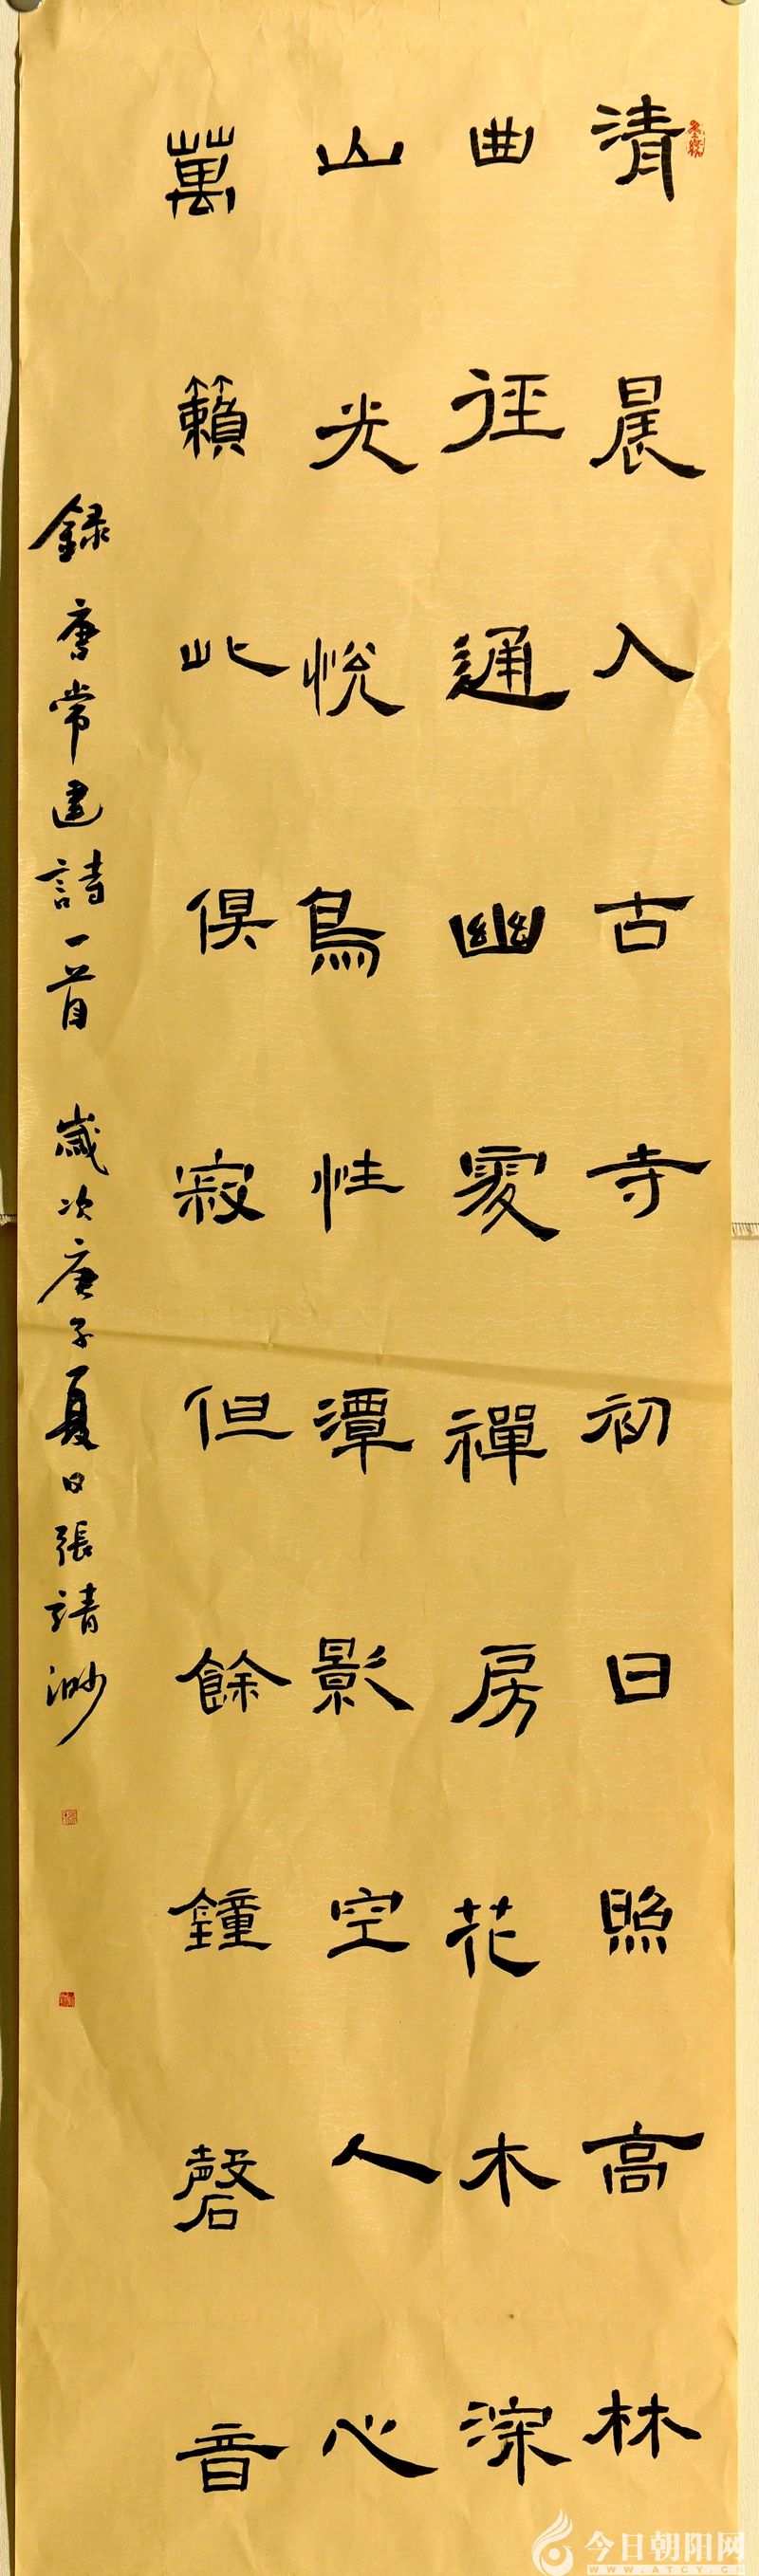 清晨入古寺初日照高林
曲径通幽處禪房花木深
山光悦鳥性潭影空人心
萬籟此俱寂但餘鐘磬音
録唐常建詩一首 歲次庚子夏日張靖渺
今日朝阳网
WWW.ATCY.CN